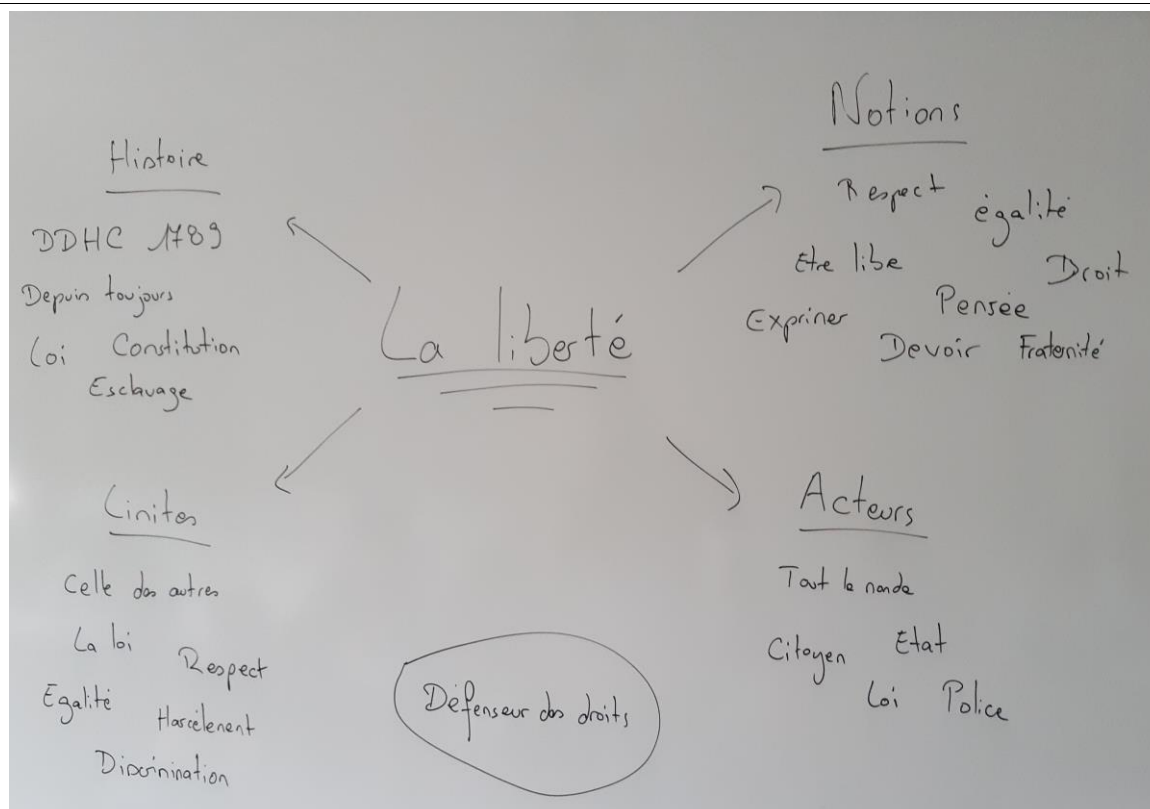 La liberté
Histoire
DDHC 1789
Depuis toujours
Loi Constitution
Esclavage
Notions
Respect égalité
Etre libe Droit
Exprimer Pensée
Devoir Fraternité
Limites
Celle des autres
La loi Respect
Egalité Harcèlement
Discrimination
Acteurs
Tout le monde
Citoyen Etat
Loi Police
Défenseur des droits